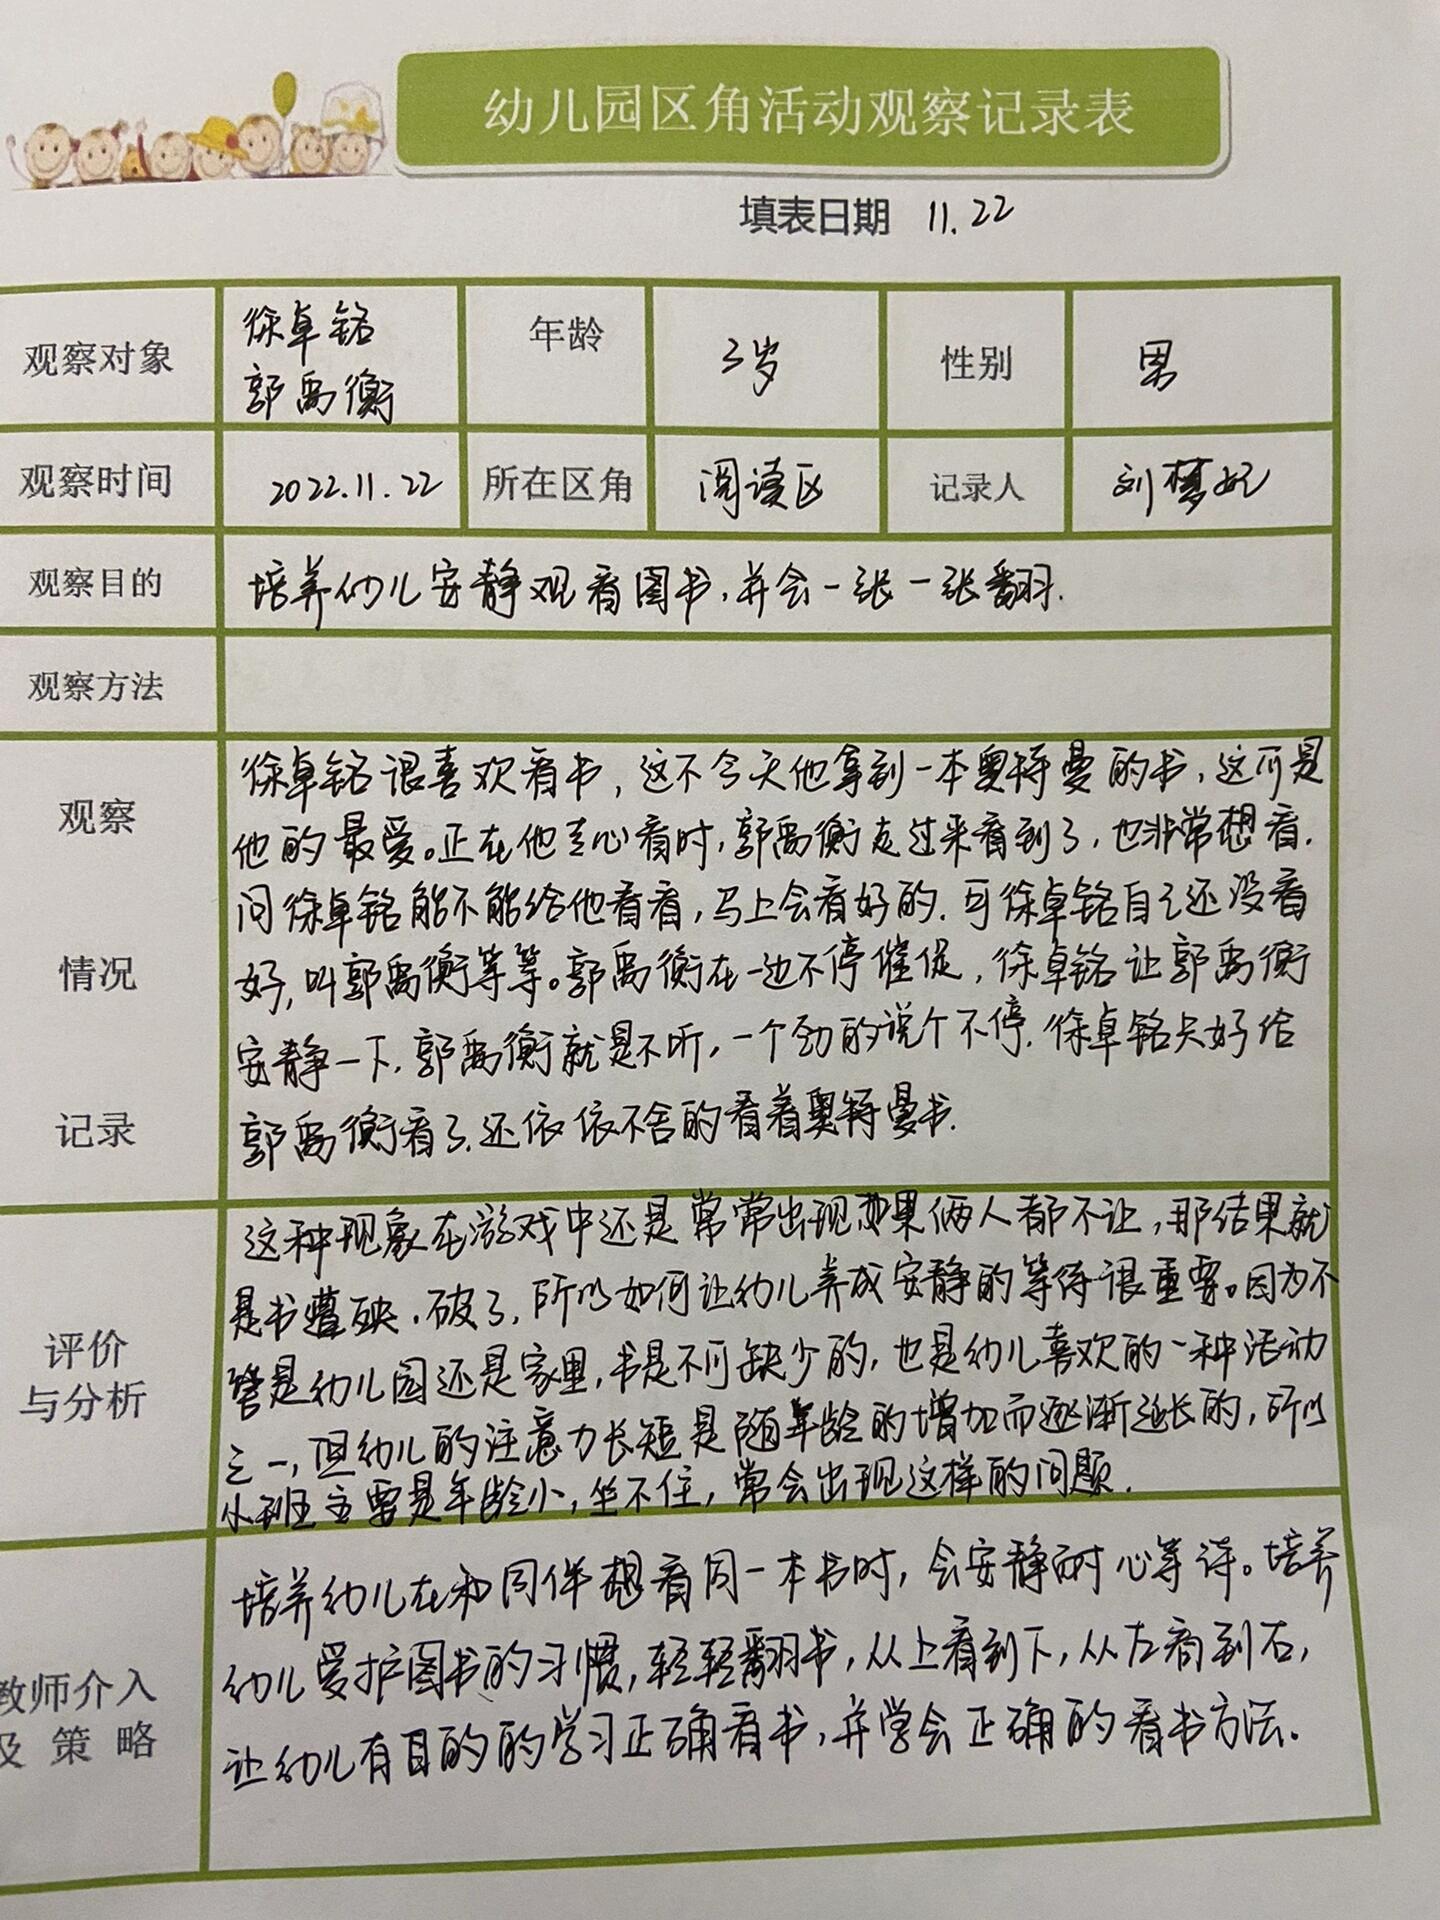 幼儿园区角活动观察记录表
填表日期 11.22
观察对象 徐卓铭 郭禹衡 年龄 3岁 性别 男
观察时间 2022.11.22 所在区角 阅读区 记录人 刘梦妃
观察目的 培养幼儿安静观看图书,并会一张一张翻.
观察方法
观察情况记录
徐卓铭很喜欢看书,这不今天他拿到一本奥特曼的书,这可是
他的最爱。正在他专心看时,郭禹衡走过来看到了,也非常想看.
问徐卓铭能不能给他看看,马上会看好的.可徐卓铭自己还没看
好,叫郭禹衡等等。郭禹衡在一边不停催促,徐卓铭让郭禹衡
安静一下.郭禹衡就是不听,一个劲的说个不停.徐卓铭只好给
郭禹衡看了.还依依不舍的看着奥特曼书.
评价与分析
这种现象在游戏中还是常常出现如果俩人都不让,那结果就
是书遭殃.破了,所以如何让幼儿养成安静的等待很重要。因为不
管是幼儿园还是家里,书是不可缺少的,也是幼儿喜欢的一种活动
之一,但幼儿的注意力长短是随年龄的增加而逐渐延长的,所以
小班主要是年龄小,坐不住,常会出现这样的问题.
教师介入及策略
培养幼儿在和同伴想看同一本书时,会安静耐心等待。培养
幼儿爱护图书的习惯,轻轻翻书,从上看到下,从左看到右,
让幼儿有目的的学习正确看书,并学会正确的看书方法。